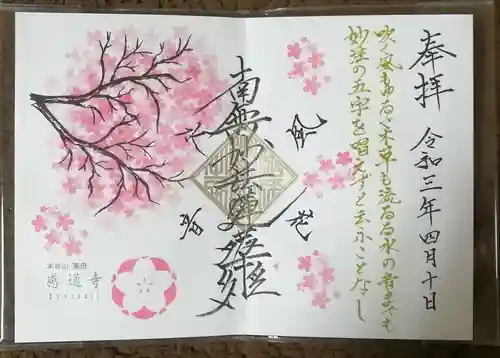 奉拝
令和三年四月十日
吹く風もゆるゝ木草も流るる水の音までも
妙法の五字を唱えずと云ふことなし
南無妙法蓮華経
感通寺